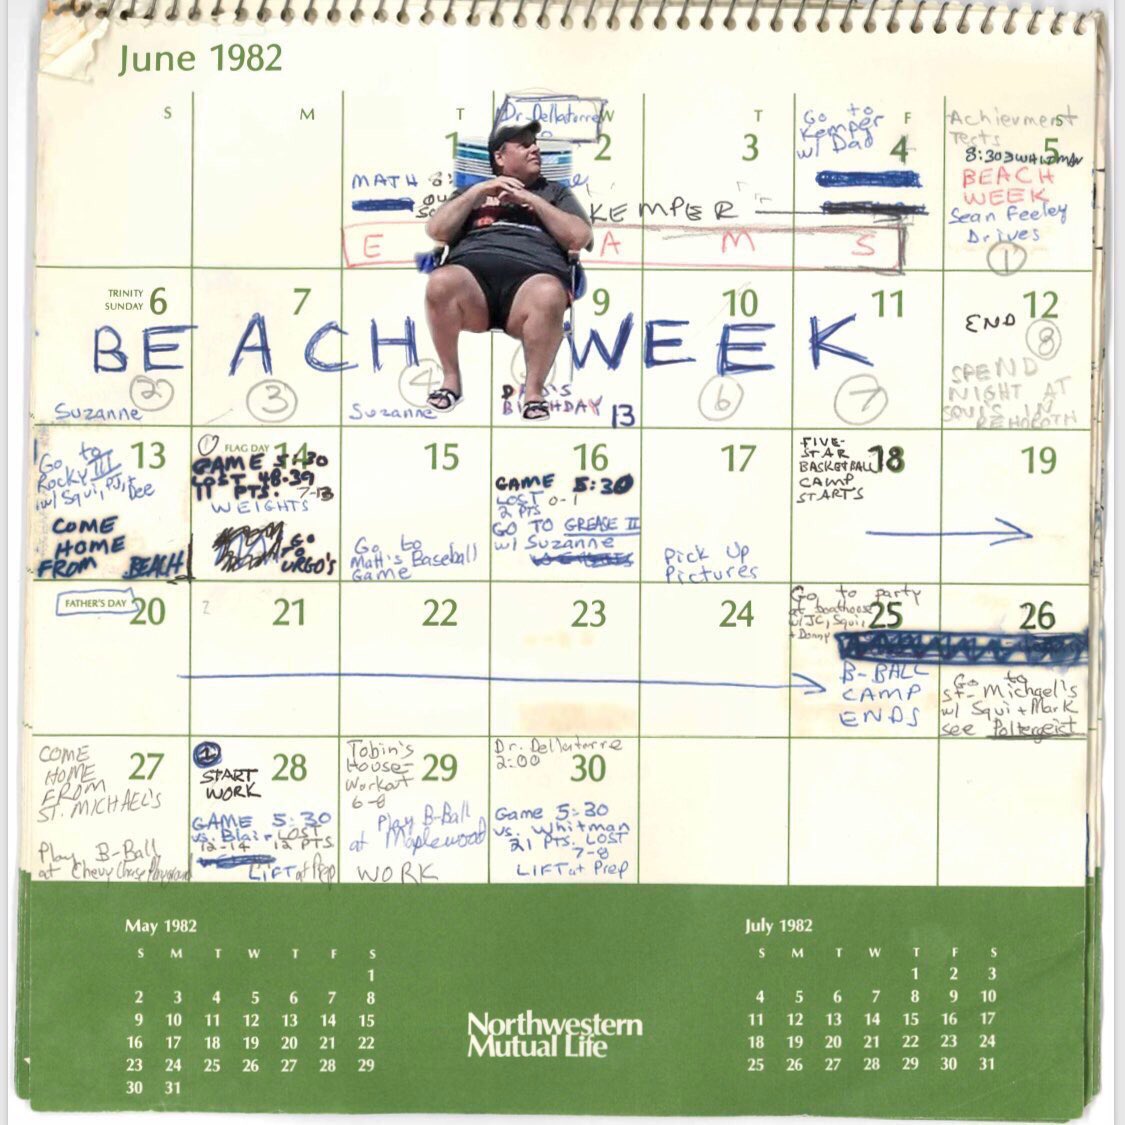 June 1982
S M T W T F S
Dr. Dellatorre
1
MATH 8:
2
KEMPER
3
Go to
Kemper
w/ Dad
4
E A M S
Achievment
Tests
5
8:30 WHITMAN
BEACH
WEEK
Sean Feeley
Drives
1
TRINITY
SUNDAY 6
7
9
10
11
12
BEACH WEEK
END
2
3
4
6
7
8
Suzanne
Suzanne
BIRTHDAY 13
SPEND
NIGHT AT
SQUI'S IN
REHOBOTH
13
Go to
Rocky III
w/ Squi, PJ, +
Dee
COME
HOME
FROM BEACH
FLAG DAY 14
GAME 5:30
LOST 48-39
11 PTS. 7-13
WEIGHTS
GO
TO
URGO'S
15
Go to
Matt's Baseball
Game
16
GAME 5:30
LOST 0-1
2 PTS
GO TO GREASE II
w/ Suzanne
17
Pick Up
Pictures
18
FIVE-
STAR
BASKETBALL
CAMP
START'S
19
FATHER'S DAY 20
2
21
22
23
24
Go to party
at boathouse
w/ JC, Squi,
+ Donny
25
B-BALL
CAMP
ENDS
26
Go to
St. Michael's
w/ Squi + Mark
see Poltergeist
COME
HOME
FROM
ST. MICHAEL'S
27
Play B-Ball
at Chevy Chase Playground
1
28
START
WORK
GAME 5:30
vs. Blair LOST
12-14 12 PTS
LIFT at Prep
Tobin's
House-
Workout
6-8
29
Play B-Ball
at Maplewood
WORK
Dr. Dellatorre
2:00
30
Game 5:30
vs. Whitman
21 PTS. LOST
7-8
LIFT at Prep
May 1982
S M T W T F S
1
2 3 4 5 6 7 8
9 10 11 12 13 14 15
16 17 18 19 20 21 22
23 24 25 26 27 28 29
30 31
Northwestern
Mutual Life
July 1982
S M T W T F S
1 2 3
4 5 6 7 8 9 10
11 12 13 14 15 16 17
18 19 20 21 22 23 24
25 26 27 28 29 30 31